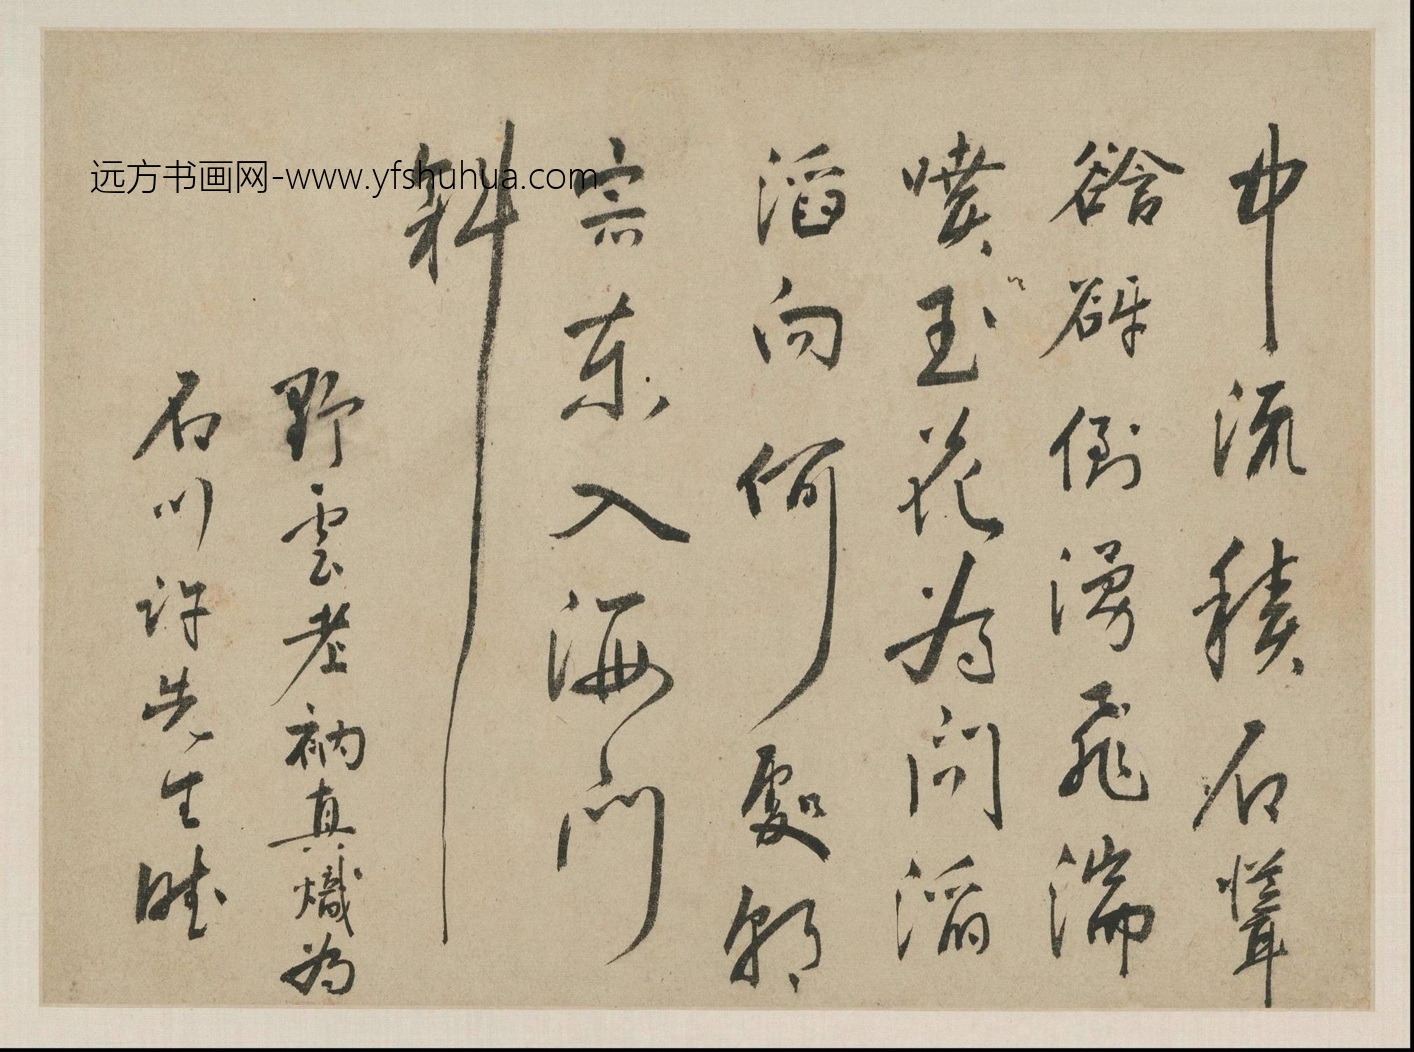 中流積石聳
谽谺倒瀉飛湍
噴玉花為問滔
滔向何處朝
宗東入海門
斜
野雲老衲真熾為
石川許先生賦
远方书画网-www.yfshuhua.com